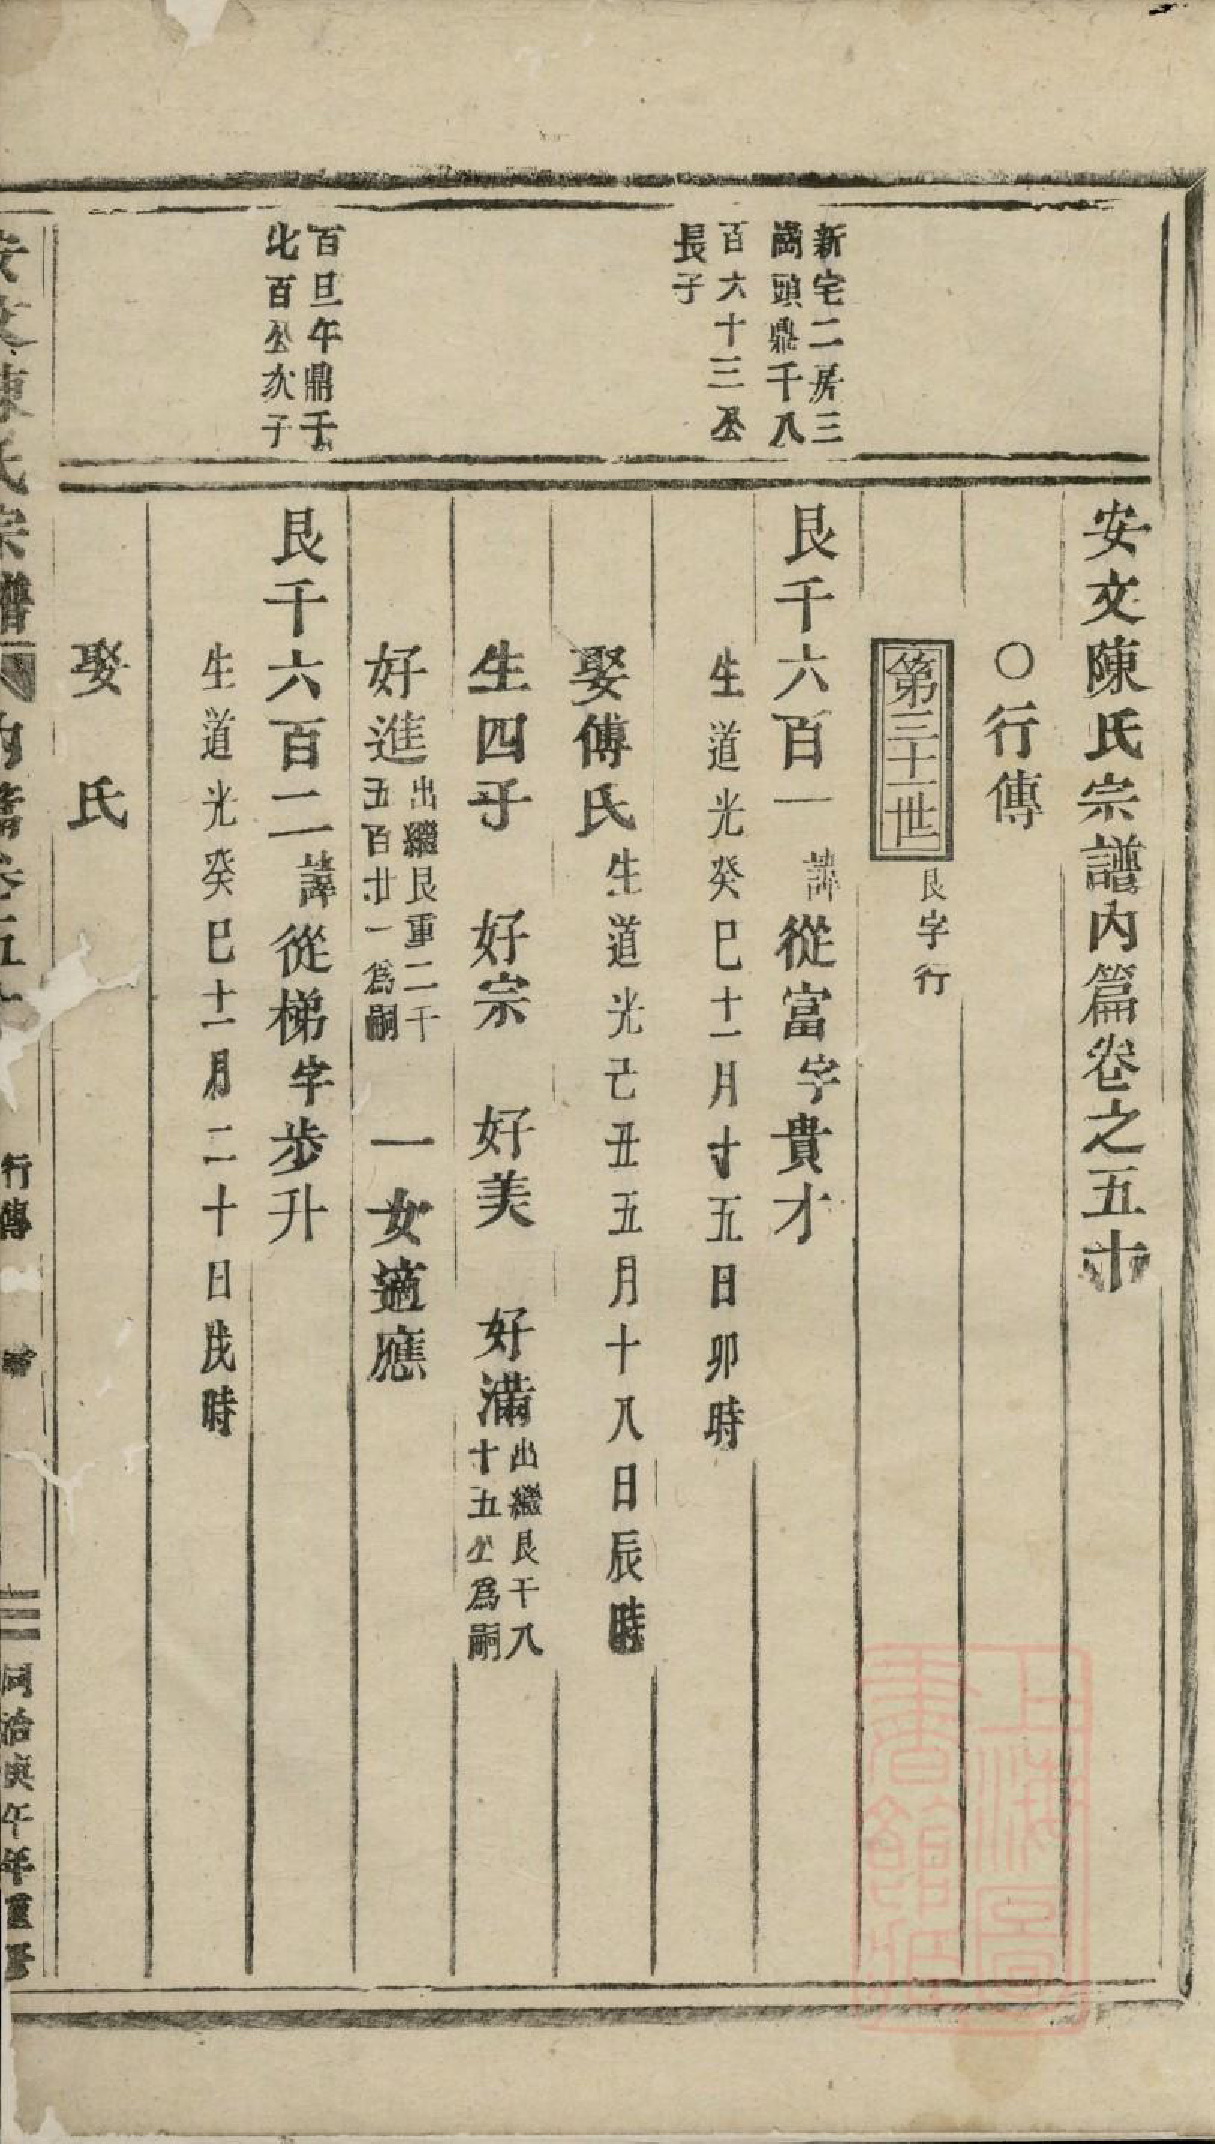 安文陳氏宗譜內篇卷之五十
○行傳
第三十一世
艮字行
新宅二房三
崗頭鼎千八
百六十三公
長子
艮千六百一諱從富字貴才
生道光癸巳十一月十五日卯時
娶傅氏生道光己丑五月十八日辰時
生四子 好宗 好美 好滿出繼艮千八
十五公為嗣
好進出繼艮重二千
五百廿一為嗣 一女適應
百旦午鼎千
七百公次子
艮千六百二諱從梯字步升
生道光癸巳十一月二十日戌時
娶 氏
安文陳氏宗譜
內篇卷五十
行傳
同治庚午年重修
上海圖
書館藏